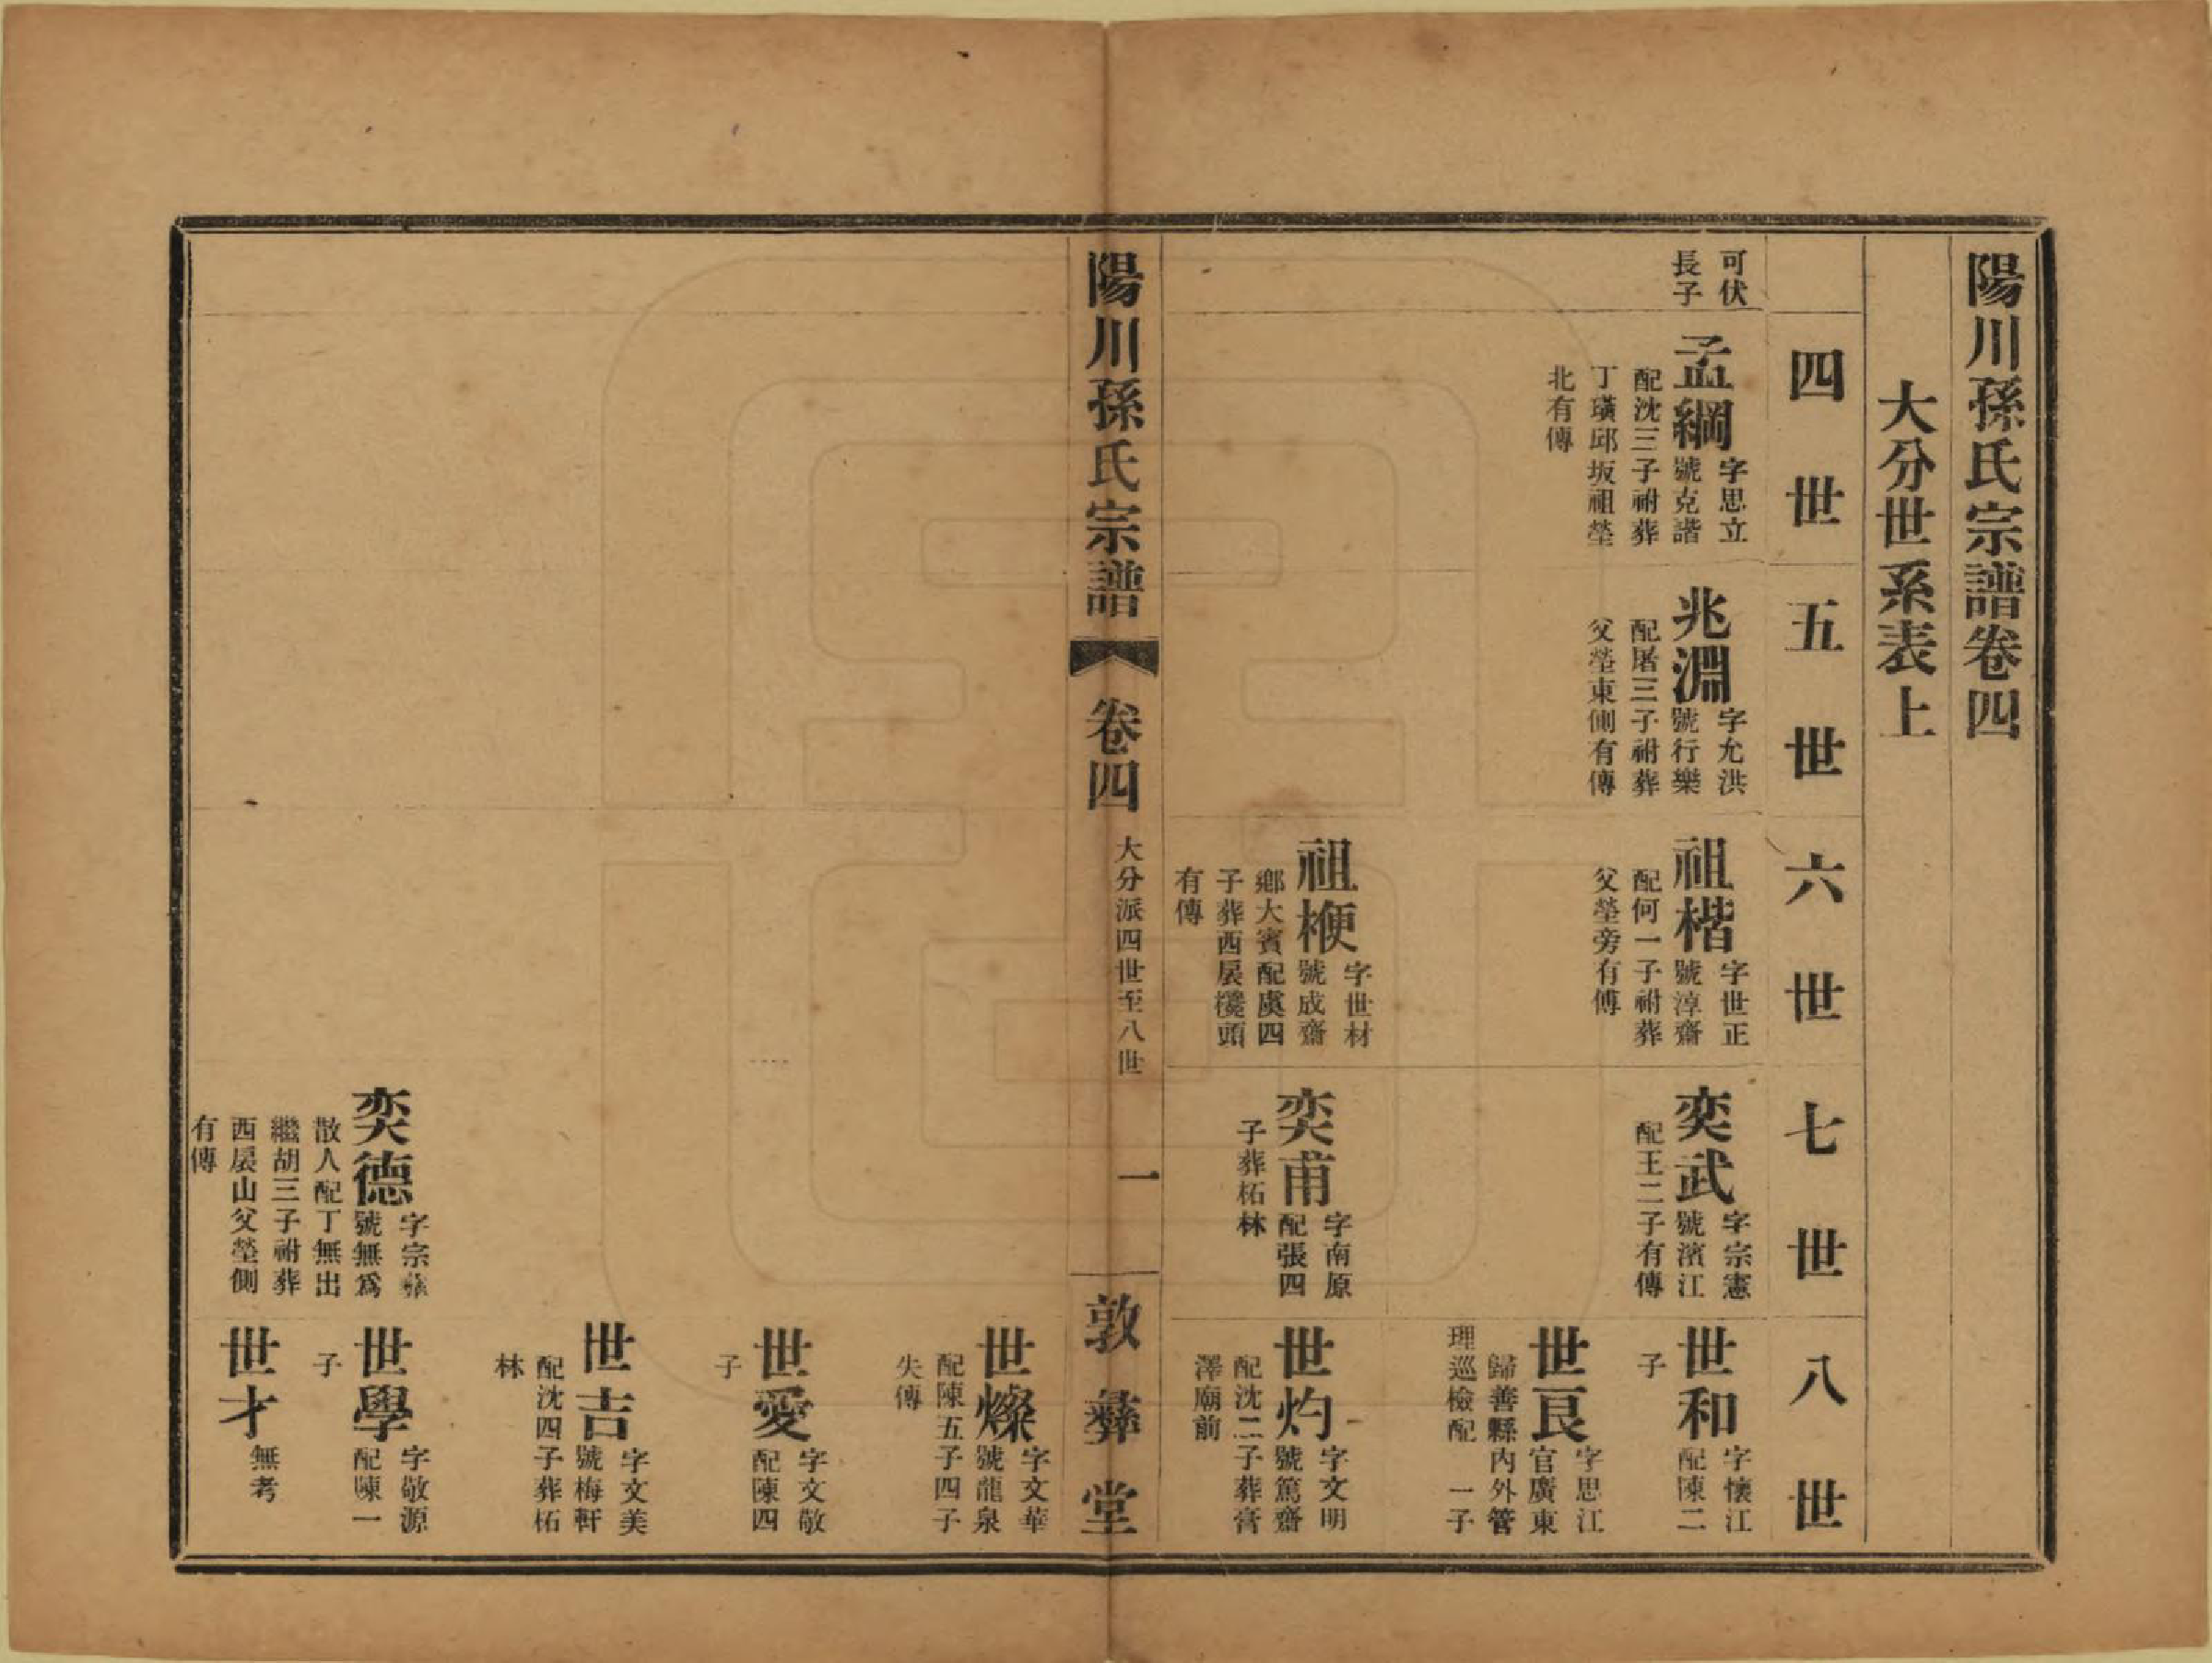 陽川孫氏宗譜卷四
大分世系表上
四世
五世
六世
七世
八世
可伏
長子
孟綱
字思立
號克諧
配沈三子祔葬
丁璜邱坂祖塋
北有傳
兆淵
字允洪
號行樂
配屠三子祔葬
父塋東側有傳
祖楷
字世正
號淳齋
配何一子祔葬
父塋旁有傳
奕武
字宗憲
號濱江
配王二子有傳
世和
字懷江
配陳二
子
世良
字思江
官廣東
歸善縣內外管
理巡檢配 一子
祖楩
字世材
號成齋
鄉大賓配虞四
子葬西扆 頭
有傳
奕甫
字南原
配張四
子葬柘林
世灼
字文明
號篤齋
配沈二子葬膏
澤廟前
陽川孫氏宗譜
卷四
大分派四世至八世
一
敦彝堂
世燦
字文華
號龍泉
配陳五子四子
失傳
世愛
字文敬
配陳四
子
世吉
字文美
號梅軒
配沈四子葬柘
林
奕德
字宗彝
號無爲
散人配丁無出
繼胡三子祔葬
西扆山父塋側
有傳
世學
字敬源
配陳一
子
世才
無考